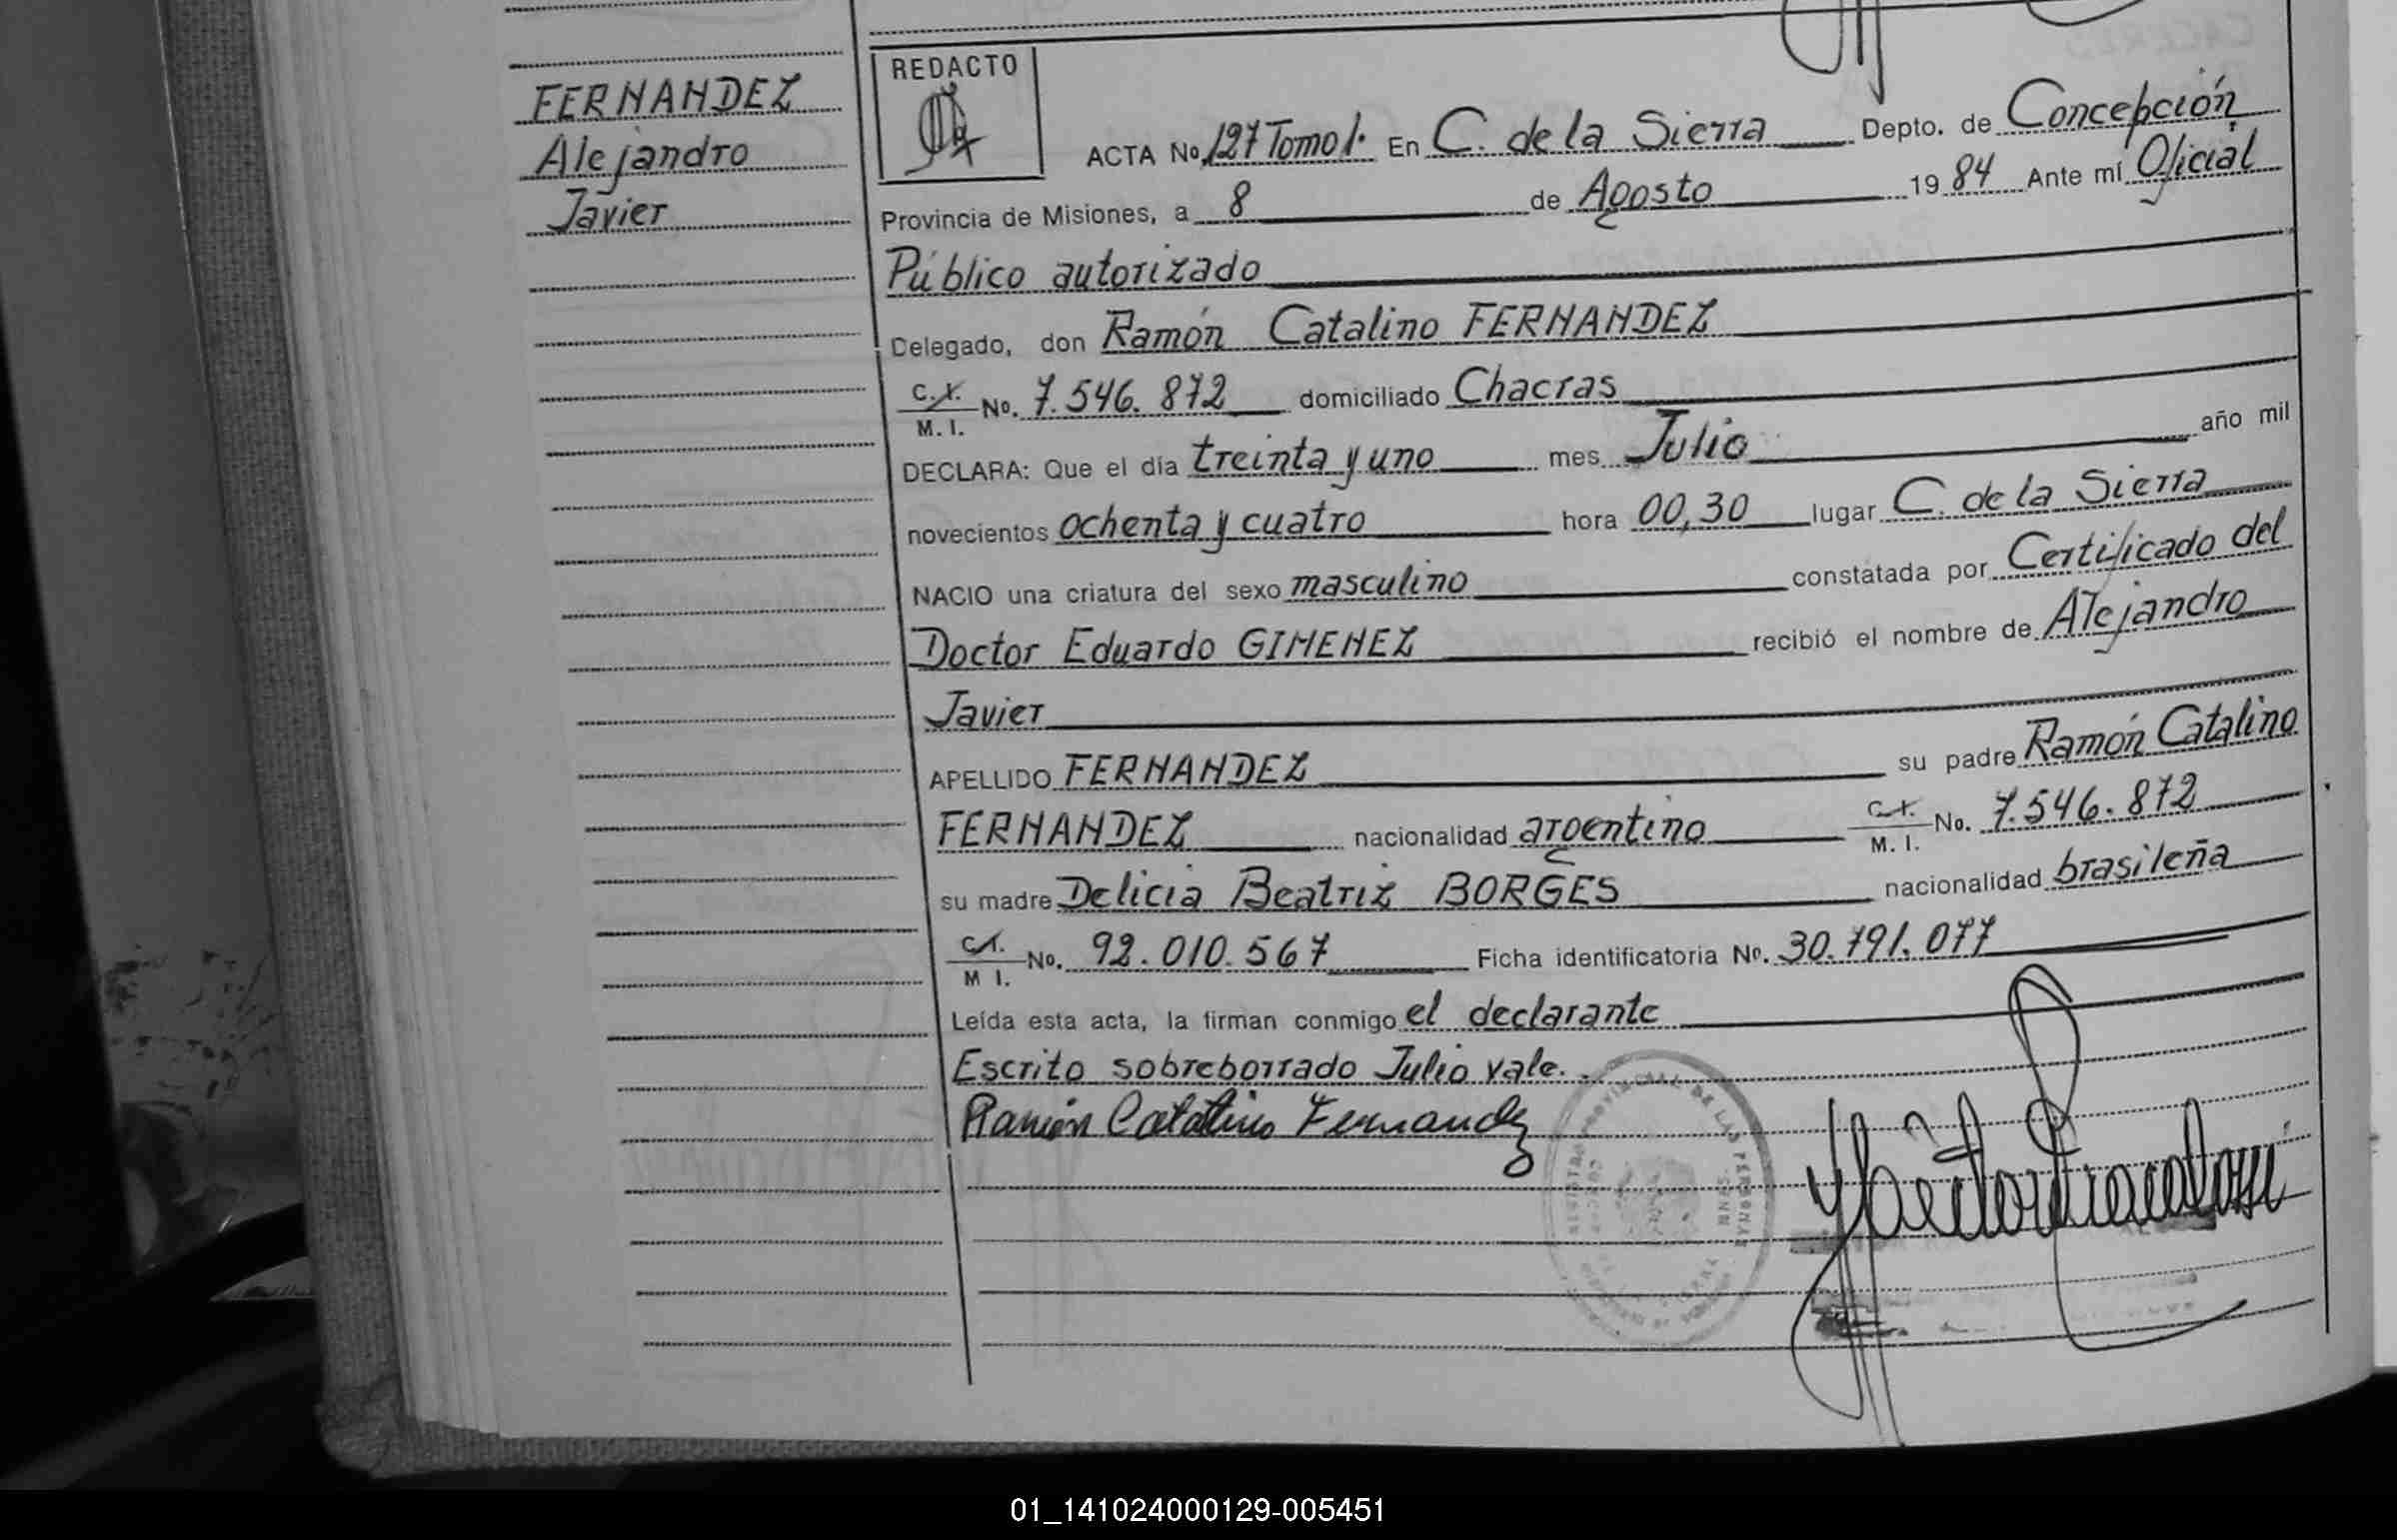 FERNANDEZ
Alejandro
Javier
REDACTO
ACTA No 127 Tomo I. En C. de la Sierra Depto. de Concepción
Provincia de Misiones, a 8 de Agosto 1984 Ante mí Oficial
Público autorizado
Delegado, don Ramón Catalino FERNANDEZ
C.I. M.I. No. 7.546.872 domiciliado Chacras
DECLARA: Que el día treinta y uno mes Julio año mil
novecientos ochenta y cuatro hora 00,30 lugar C. de la Sierra
NACIO una criatura del sexo masculino constatada por Certificado del
Doctor Eduardo GIMENEZ recibió el nombre de Alejandro
Javier
APELLIDO FERNANDEZ su padre Ramón Catalino
FERNANDEZ nacionalidad argentino C.I. M.I. No. 7.546.872
su madre Delicia Beatriz BORGES nacionalidad brasileña
C.I. M I. No. 92.010.567 Ficha identificatoria No. 30.791.077
Leída esta acta, la firman conmigo el declarante
Escrito sobreborrado Julio vale.
Ramón Catalino Fernandez
01_141024000129-005451